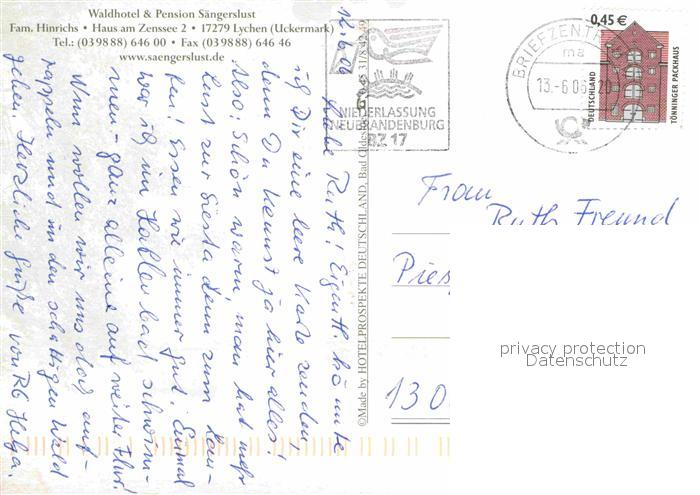 Waldhotel & Pension Sängerslust
Fam. Hinrichs • Haus am Zenssee 2 • 17279 Lychen (Uckermark)
Tel.: (03 98 88) 646 00 • Fax (03 98 88) 646 46
www.saengerslust.de
12.6.06
Liebe Ruth! Eigentl. könnte
ich Dir eine leere Karte senden
denn Du kennst ja hier alles!
Also: Schön warm, man hat mehr
Lust zur Siesta denn zum
Essen wie immer gut. Einmal
war ich im schwim-
men - ganz alleine auf weiter Flur!
Nun wollen wir uns doch auf-
rappeln und in den schattigen Wald
gehen. Herzliche Grüße von Helga.
©Made by HOTELPROSPEKTE DEUTSCHLAND, Bad
NIEDERLASSUNG
NEUBRANDENBURG
BZ 17
BRIEFZENTRUM
ma
13.-6.06
0,45 €
DEUTSCHLAND
TÖNNINGER PACKHAUS
Frau
Ruth Freund
Pies
130
privacy protection
Datenschutz